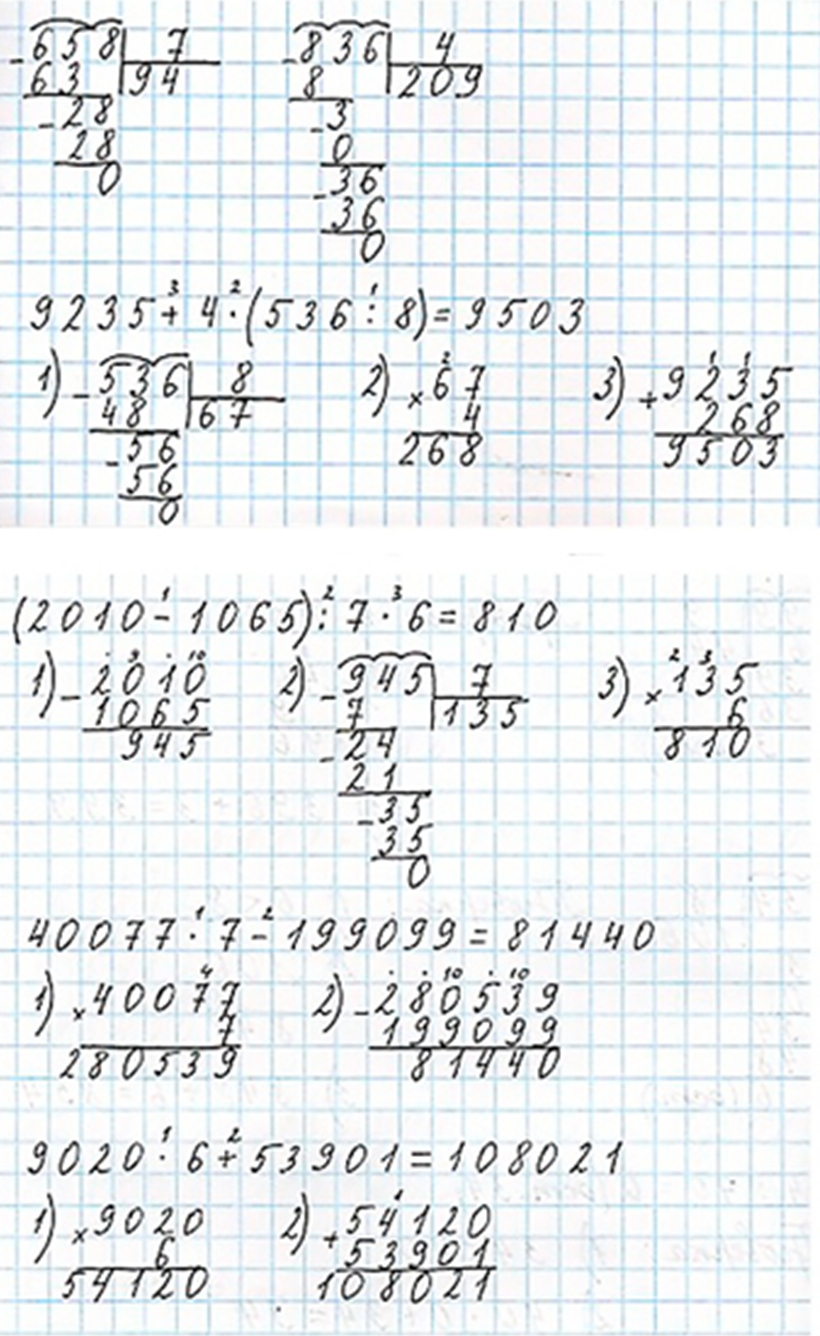 658 | 7      836 | 4
63 | 94      8 | 209
28      3
28      0
0      36
36
0
9235 + 4 · (536 : 8) = 9503
3 2 1
1) 536 | 8      2) × 67      3) + 9235
48 | 67      4      268
56      268      9503
56
0
(2010 - 1065) : 7 · 6 = 810
1 2 3
1) - 2010      2) - 945 | 7      3) × 135
1065      7 | 135      6
945      24      810
21
35
35
0
40077 · 7 - 199099 = 81440
1 2
1) × 40077      2) - 280539
7      199099
280539      81440
9020 · 6 + 53901 = 108021
1 2
1) × 9020      2) + 54120
6      53901
54120      108021